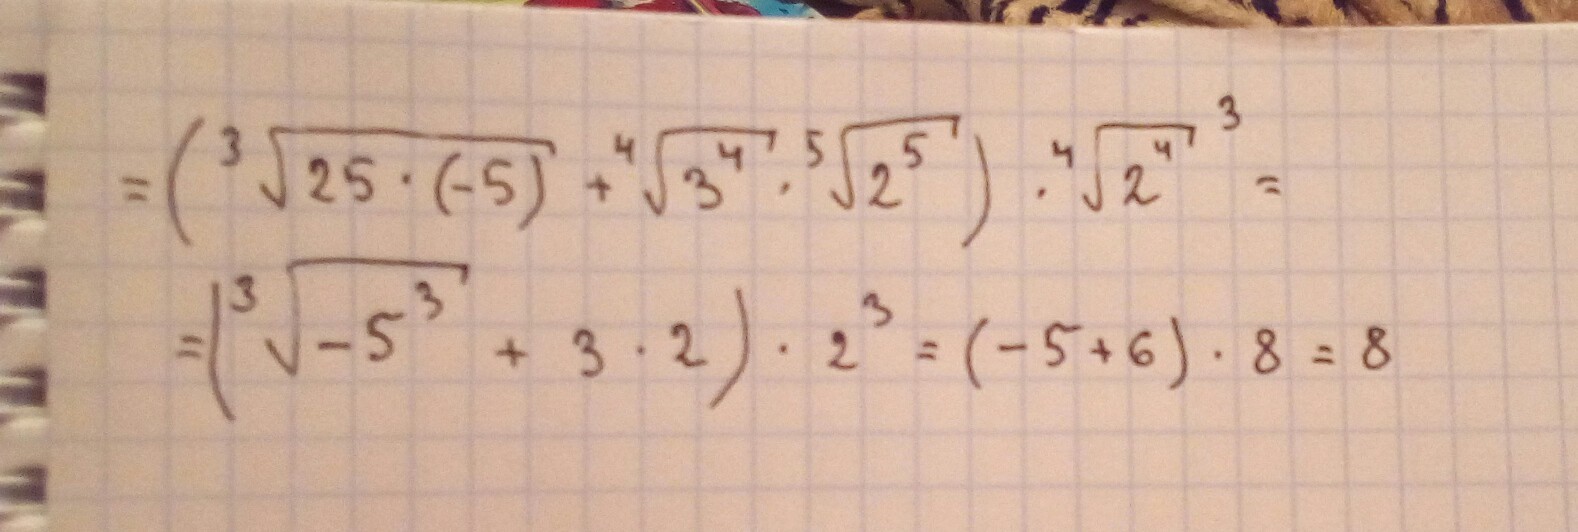 = ( ³√25 · (-5) + ⁴√3⁴ · ⁵√2⁵ ) · ⁴√2⁴ ³ =
= ( ³√-5³ + 3 · 2 ) · 2³ = (-5+6) · 8 = 8